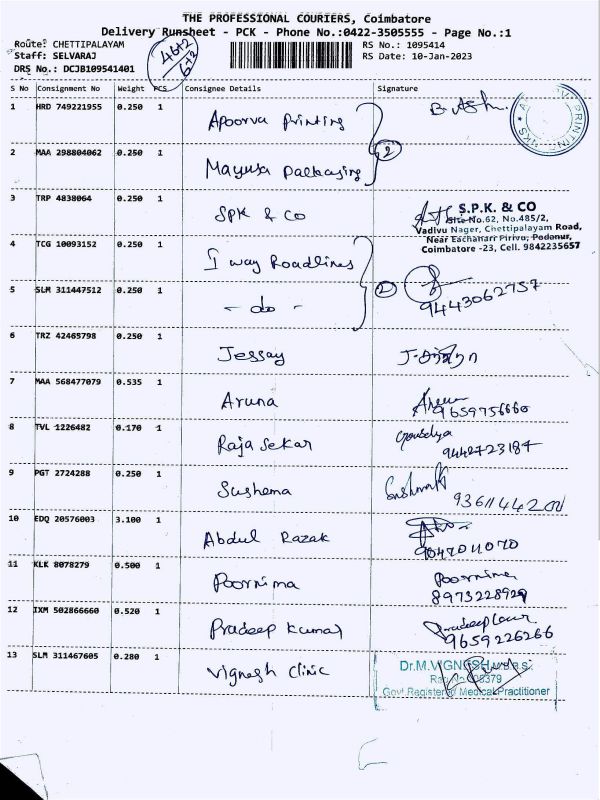 THE PROFESSIONAL COURIERS, Coimbatore
Delivery Runsheet - PCK - Phone No.:0422-3505555 - Page No.:1
Route: CHETTIPALAYAM
RS No.: 1095414
Staff: SELVARAJ
RS Date: 10-Jan-2023
DRS No.: DCJB109541401
46+2
6+2
S No Consignment No Weight PCS Consignee Details Signature
1 HRD 749221955 0.250 1 Apoorva Printing
2 MAA 298804062 0.250 1 Mayura Packaging
2
3 TRP 4838064 0.250 1 SPK & Co
S.P.K. & CO
Site No.62, No.485/2,
Vadivu Nager, Chettipalayam Road,
Near Eachanari Pirivu, Podanur,
Coimbatore -23, Cell. 9842235657
4 TCG 10093152 0.250 1 I way Roadlines
5 SLM 311447512 0.250 1 - do - 2 9443062757
6 TRZ 42465798 0.250 1 Jessay
7 MAA 568477079 0.535 1 Aruna 9659756660
8 TVL 1226482 0.170 1 Raja Sekar 9442723187
9 PGT 2724288 0.250 1 Sushema
10 EDQ 20576003 3.100 1 Abdul Razak 9047011070
11 KLK 8078279 0.500 1 Poornima Poornima 8973228929
12 IXM 502866660 0.520 1 Pradeep Kumar 9659226266
13 SLM 311467605 0.280 1 Vignesh Clinic
Dr.M.VIGNESH M.B.B.S.
Govt Registered Medical Practitioner